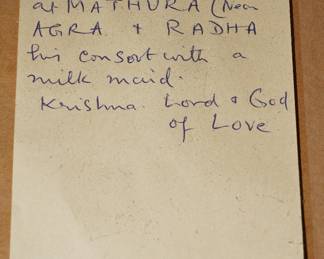 at MATHURA (Near
AGRA & RADHA
his consort with a
milk maid.
Krishna. Lord & God
of Love